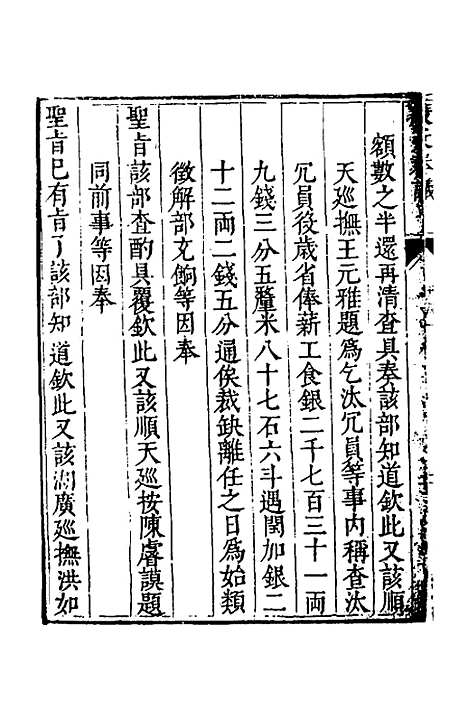 額數之半還再清查具奏該部知道欽此又該順
天廵撫王元雅題爲乞汰冗員等事内稱查汰
冗員後歲省俸薪工食銀二千七百三十一两
九錢三分五釐米八十七石六斗遇閏加銀二
十二两二錢五分通俟裁缺離任之日爲始類
徵解部充餉等因奉
聖旨該部查酌具覆欽此又該順天廵按陳睿謨題
同前事等因奉
聖旨已有旨了該部知道欽此又該湖廣廵撫洪如